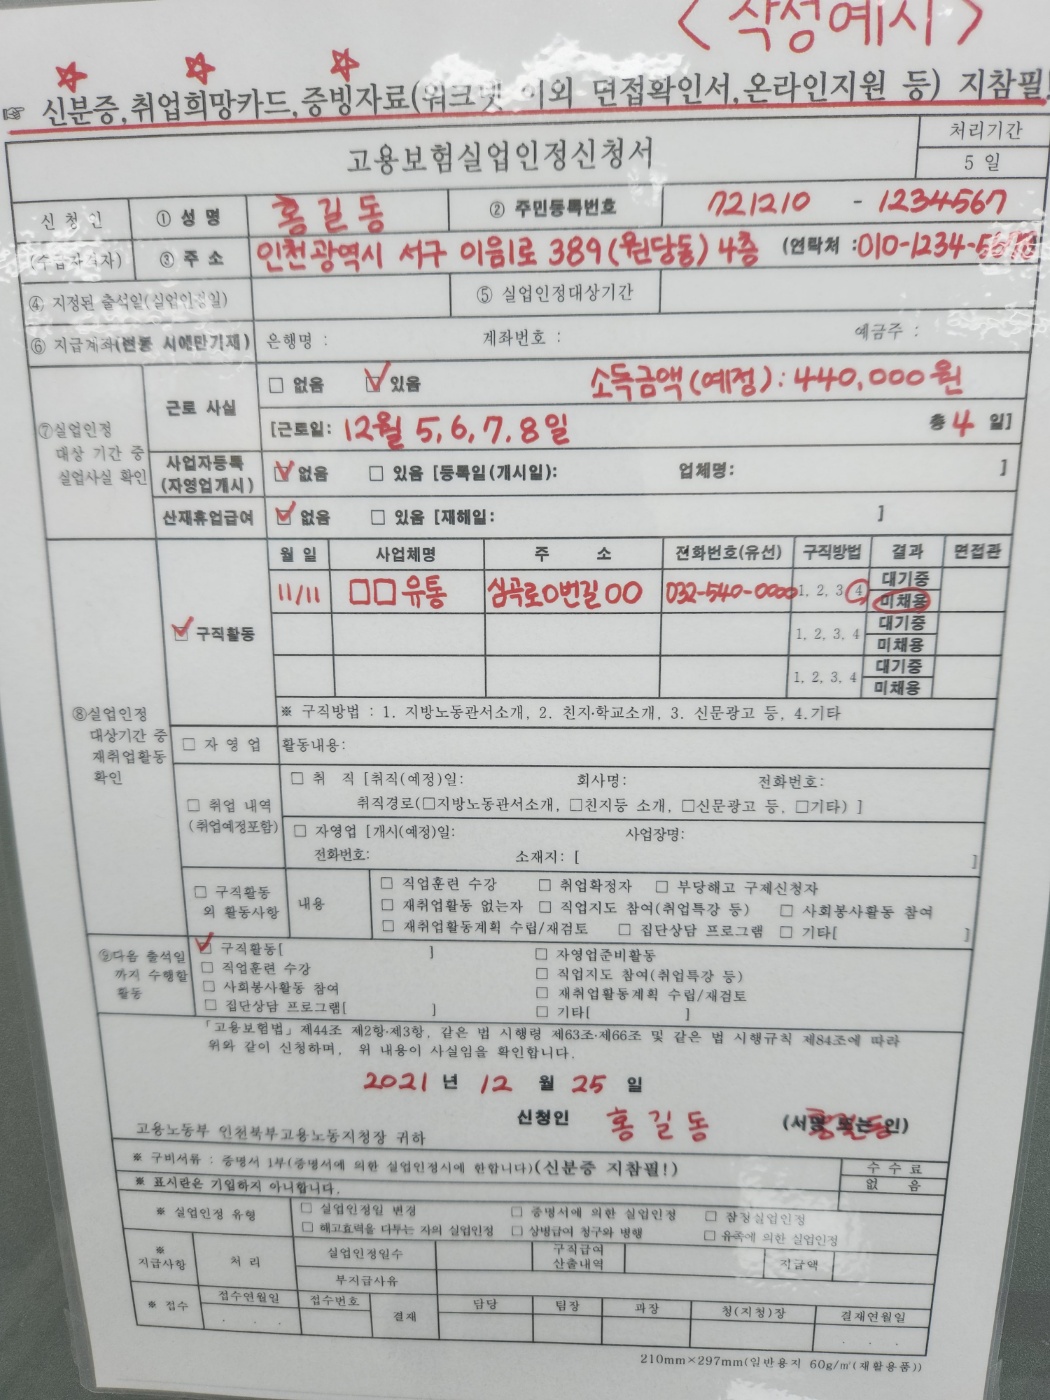 <작성예시>
☞ 신분증,취업희망카드,증빙자료(워크넷 이외 면접확인서,온라인지원 등) 지참필!
고용보험실업인정신청서
처리기간
5 일
신 청 인
(수급자격자)
① 성 명
홍길동
② 주민등록번호
721210 - 1234567
③ 주 소
인천광역시 서구 이음1로 389(원당동) 4층 (연락처 :010-1234-5678
④ 지정된 출석일(실업인정일)
⑤ 실업인정대상기간
⑥ 지급계좌(변동 시에만기재)
은행명 : 계좌번호 : 예금주 :
⑦실업인정
대상 기간 중
실업사실 확인
근로 사실
□ 없음 ☑ 있음 소득금액(예정): 440,000원
[근로일: 12월 5,6,7,8일 총 4 일]
사업자등록
(자영업개시)
☑ 없음 □ 있음 [등록일(개시일): 업체명: ]
산재휴업급여
☑ 없음 □ 있음 [재해일: ]
⑧실업인정
대상기간 중
재취업활동
확인
☑ 구직활동
월 일 사업체명 주 소 전화번호(유선) 구직방법 결과 면접관
11/11 □□유통 심곡로0번길00 032-540-0000 1, 2, 3, 4 대기중
미채용
1, 2, 3, 4 대기중
미채용
1, 2, 3, 4 대기중
미채용
※ 구직방법 : 1. 지방노동관서소개, 2. 친지·학교소개, 3. 신문광고 등, 4.기타
□ 자 영 업 활동내용:
□ 취업 내역
(취업예정포함)
□ 취 직 [취직(예정)일: 회사명: 전화번호:
취직경로(□지방노동관서소개, □친지등 소개, □신문광고 등, □기타) ]
□ 자영업 [개시(예정)일: 사업장명:
전화번호: 소재지: [ ]
□ 구직활동
외 활동사항
내용
□ 직업훈련 수강 □ 취업확정자 □ 부당해고 구제신청자
□ 재취업활동 없는자 □ 직업지도 참여(취업특강 등) □ 사회봉사활동 참여
□ 재취업활동계획 수립/재검토 □ 집단상담 프로그램 □ 기타[ ]
⑨다음 출석일
까지 수행할
활동
☑ 구직활동[ ] □ 자영업준비활동
□ 직업훈련 수강 □ 직업지도 참여(취업특강 등)
□ 사회봉사활동 참여 □ 재취업활동계획 수립/재검토
□ 집단상담 프로그램[ ] □ 기타[ ]
「고용보험법」제44조 제2항·제3항, 같은 법 시행령 제63조·제66조 및 같은 법 시행규칙 제84조에 따라
위와 같이 신청하며, 위 내용이 사실임을 확인합니다.
2021 년 12 월 25 일
신청인 홍길동 (서명 또는 인)
홍길동
고용노동부 인천북부고용노동지청장 귀하
※ 구비서류 : 증명서 1부(증명서에 의한 실업인정시에 한합니다)(신분증 지참필!)
수 수 료
없 음
※ 표시란은 기입하지 아니합니다.
※ 실업인정 유형
□ 실업인정일 변경 □ 증명서에 의한 실업인정 □ 잠정실업인정
□ 해고효력을 다투는 자의 실업인정 □ 상병급여 청구와 병행 □ 유족에 의한 실업인정
※
지급사항
처 리
실업인정일수
구직급여
산출내역
지급액
부지급사유
※ 접수
접수연월일 접수번호 결재 담당 팀장 과장 청(지청)장 결재연월일
. . .
. . .
210mm×297mm(일반용지 60g/㎡(재활용품))